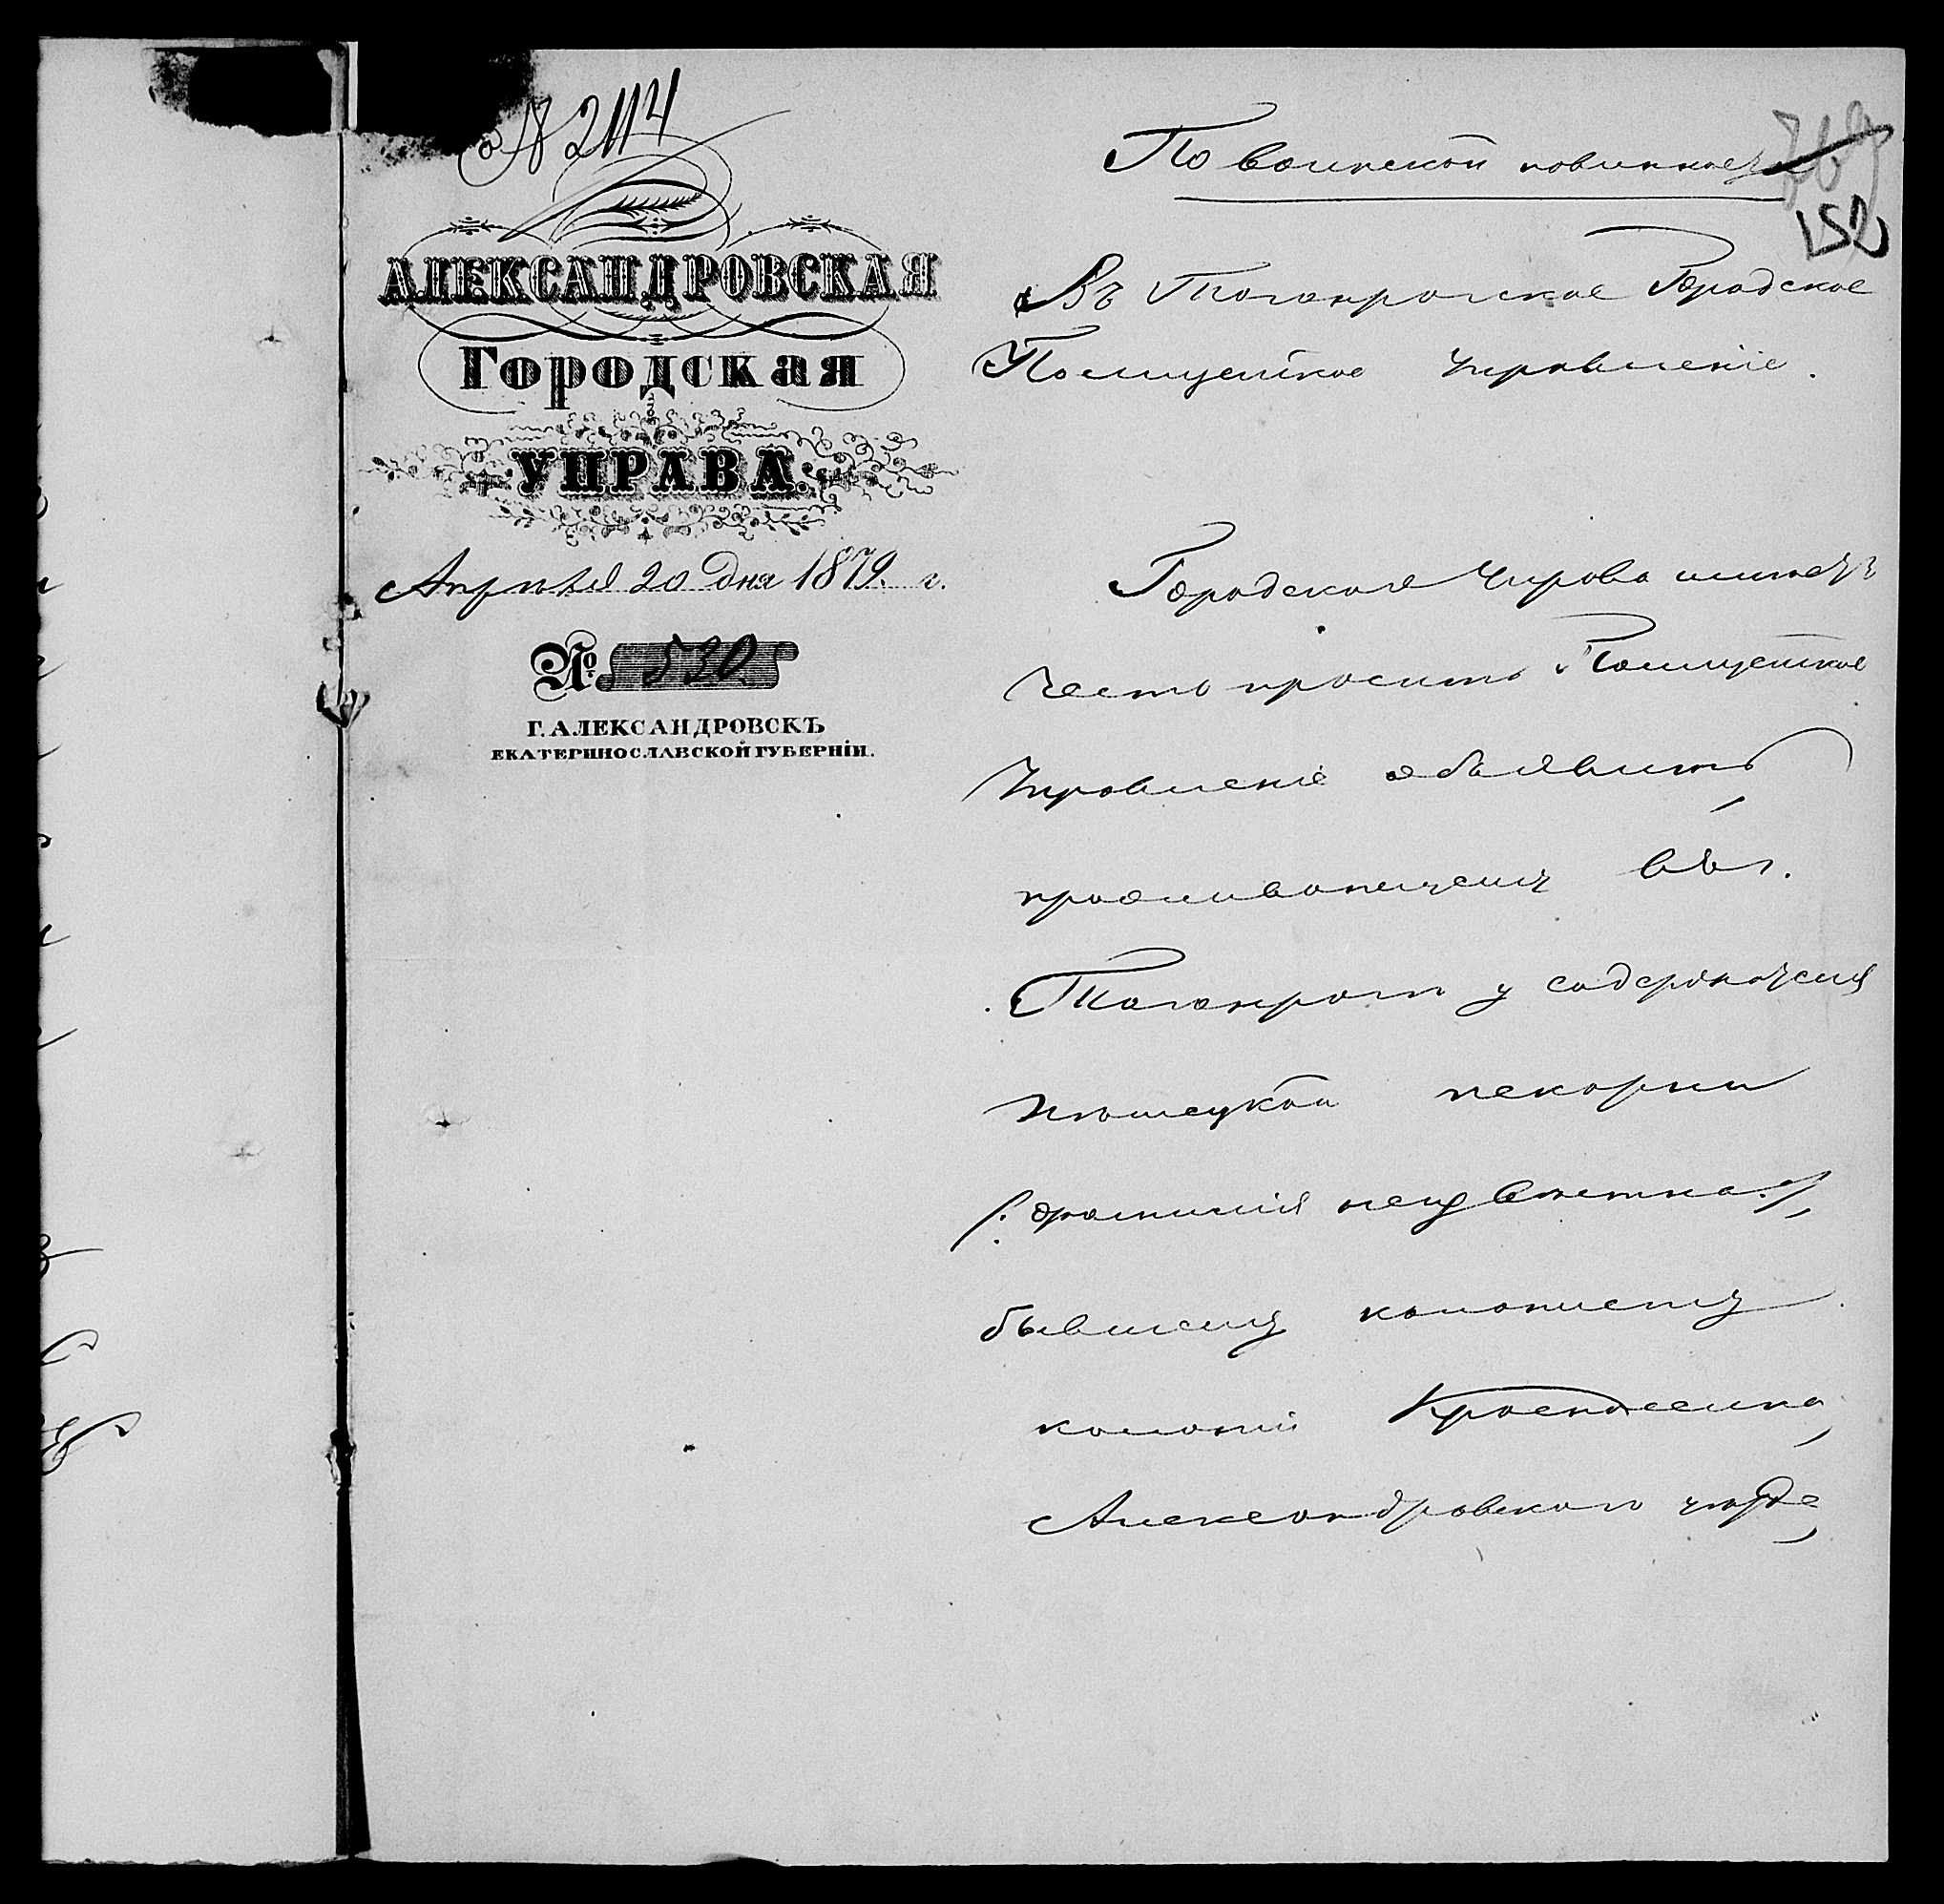 № 2114
АЛЕКСАНДРОВСКАЯ
Городская
УПРАВА.
Апрѣля 20 дня 1879 г.
№ 530
Г. АЛЕКСАНДРОВСКЪ
ЕКАТЕРИНОСЛАВСКОЙ ГУБЕРНІИ.
По воинской повинност
152
Въ Таганрогское Городское
Полицейское Управленіе.
Городская Управа имѣетъ
честь просить Полицейское
Управленіе объявить
проживающему въ г.
Таганрогѣ у содержателя
Нѣмецкой пекарни
/: фамилія неизвѣстна :/
бывшему колонисту
колоніи
Александровскаго уѣзда